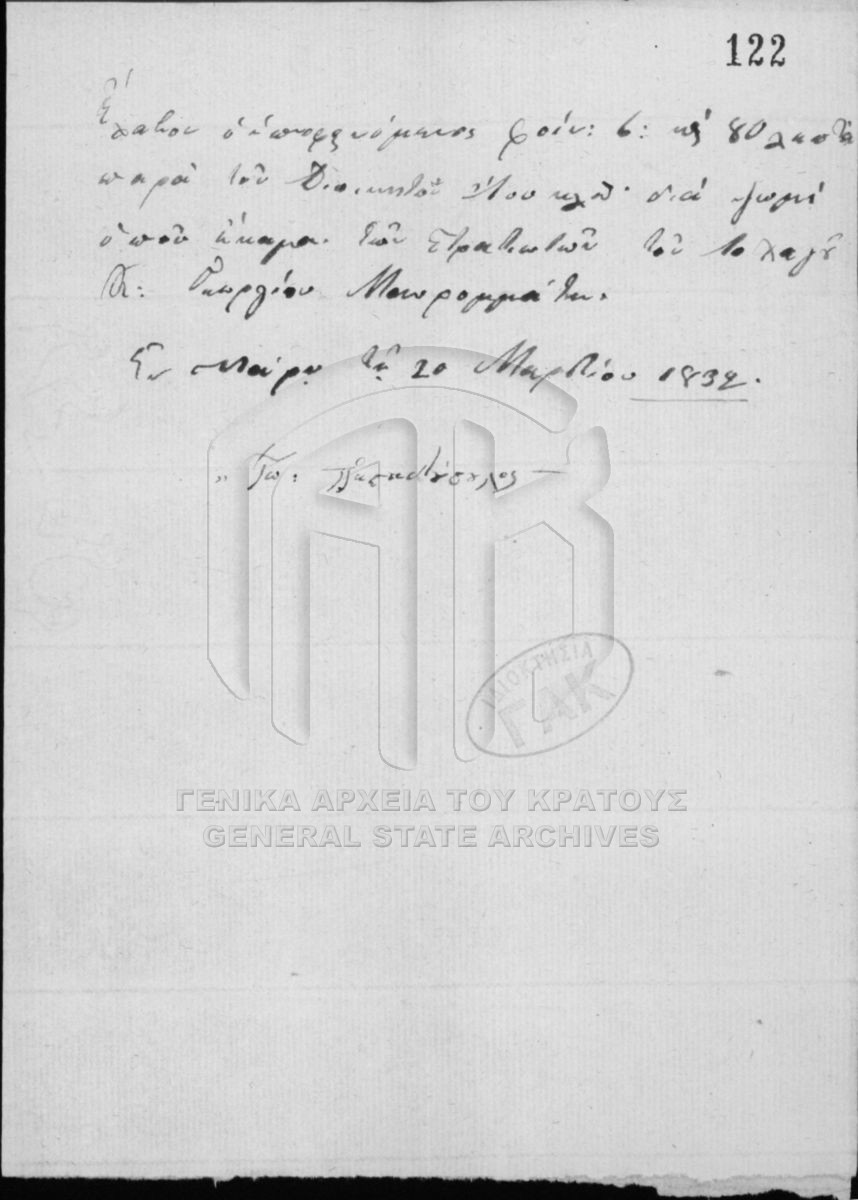 122
Ἔλαβον ὁ ὑποφαινόμενος φοίν: 6: κ 80 λεπτὰ
παρὰ τοῦ Διοικητοῦ διὰ ψωμὶ
ὁποῦ ἔκαμα τῶν στρατιωτῶν τοῦ λοχαγοῦ
Κ: Γεωργίου Μαυρομμάτη.
Ἐν τῇ 20 Μαρτίου 1832.
ΙΔΙΟΚΤΗΣΙΑ
ΓΑΚ
ΓΕΝΙΚΑ ΑΡΧΕΙΑ ΤΟΥ ΚΡΑΤΟΥΣ
GENERAL STATE ARCHIVES